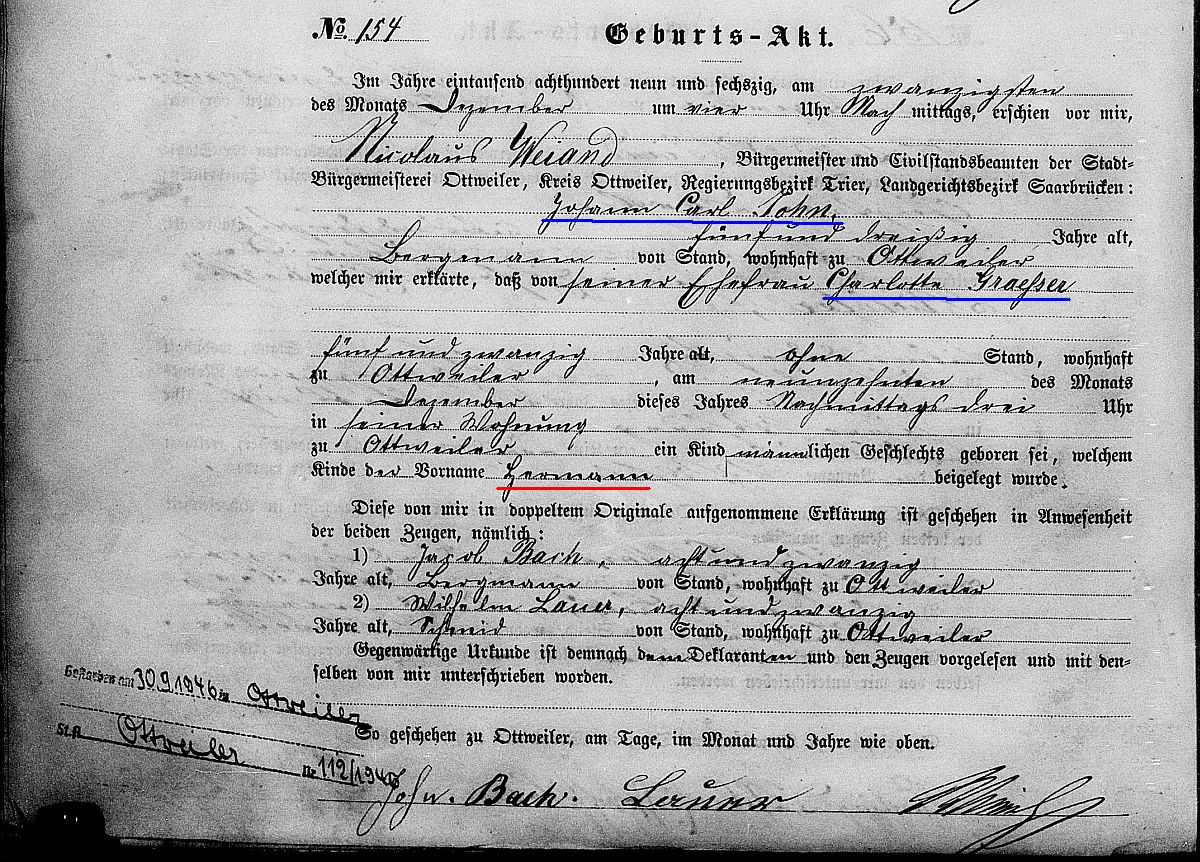 No. 154 Geburts-Akt.
Im Jahre eintausend achthundert neun und sechszig, am zwanzigsten
des Monats Dezember um vier Uhr Nach mittags, erschien vor mir,
Nicolaus Weiand, Bürgermeister und Civilstandsbeamten der Stadt-
Bürgermeisterei Ottweiler, Kreis Ottweiler, Regierungsbezirk Trier, Landgerichtsbezirk Saarbrücken:
Johann Carl John,
fünf und dreißig Jahre alt,
Bergmann von Stand, wohnhaft zu Ottweiler
welcher mir erklärte, daß von seiner Ehefrau Charlotte Graesser
fünf und zwanzig Jahre alt, ohne Stand, wohnhaft
zu Ottweiler, am neunzehnten des Monats
Dezember dieses Jahres Nachmittags drei Uhr
in seiner Wohnung
zu Ottweiler ein Kind männlichen Geschlechts geboren sei, welchem
Kinde der Vorname Hermann beigelegt wurde.
Diese von mir in doppeltem Originale aufgenommene Erklärung ist geschehen in Anwesenheit
der beiden Zeugen, nämlich:
1) Jacob Bach, acht und zwanzig
Jahre alt, Bergmann von Stand, wohnhaft zu Ottweiler
2) Wilhelm Lauer, acht und zwanzig
Jahre alt, Schmid von Stand, wohnhaft zu Ottweiler
Gegenwärtige Urkunde ist demnach dem Deklaranten und den Zeugen vorgelesen und mit den-
selben von mir unterschrieben worden.
Gestorben am 30.9.1946 in Ottweiler
StA Ottweiler Nr 112/1946
So geschehen zu Ottweiler, am Tage, im Monat und Jahre wie oben.
John. Bach. Lauer